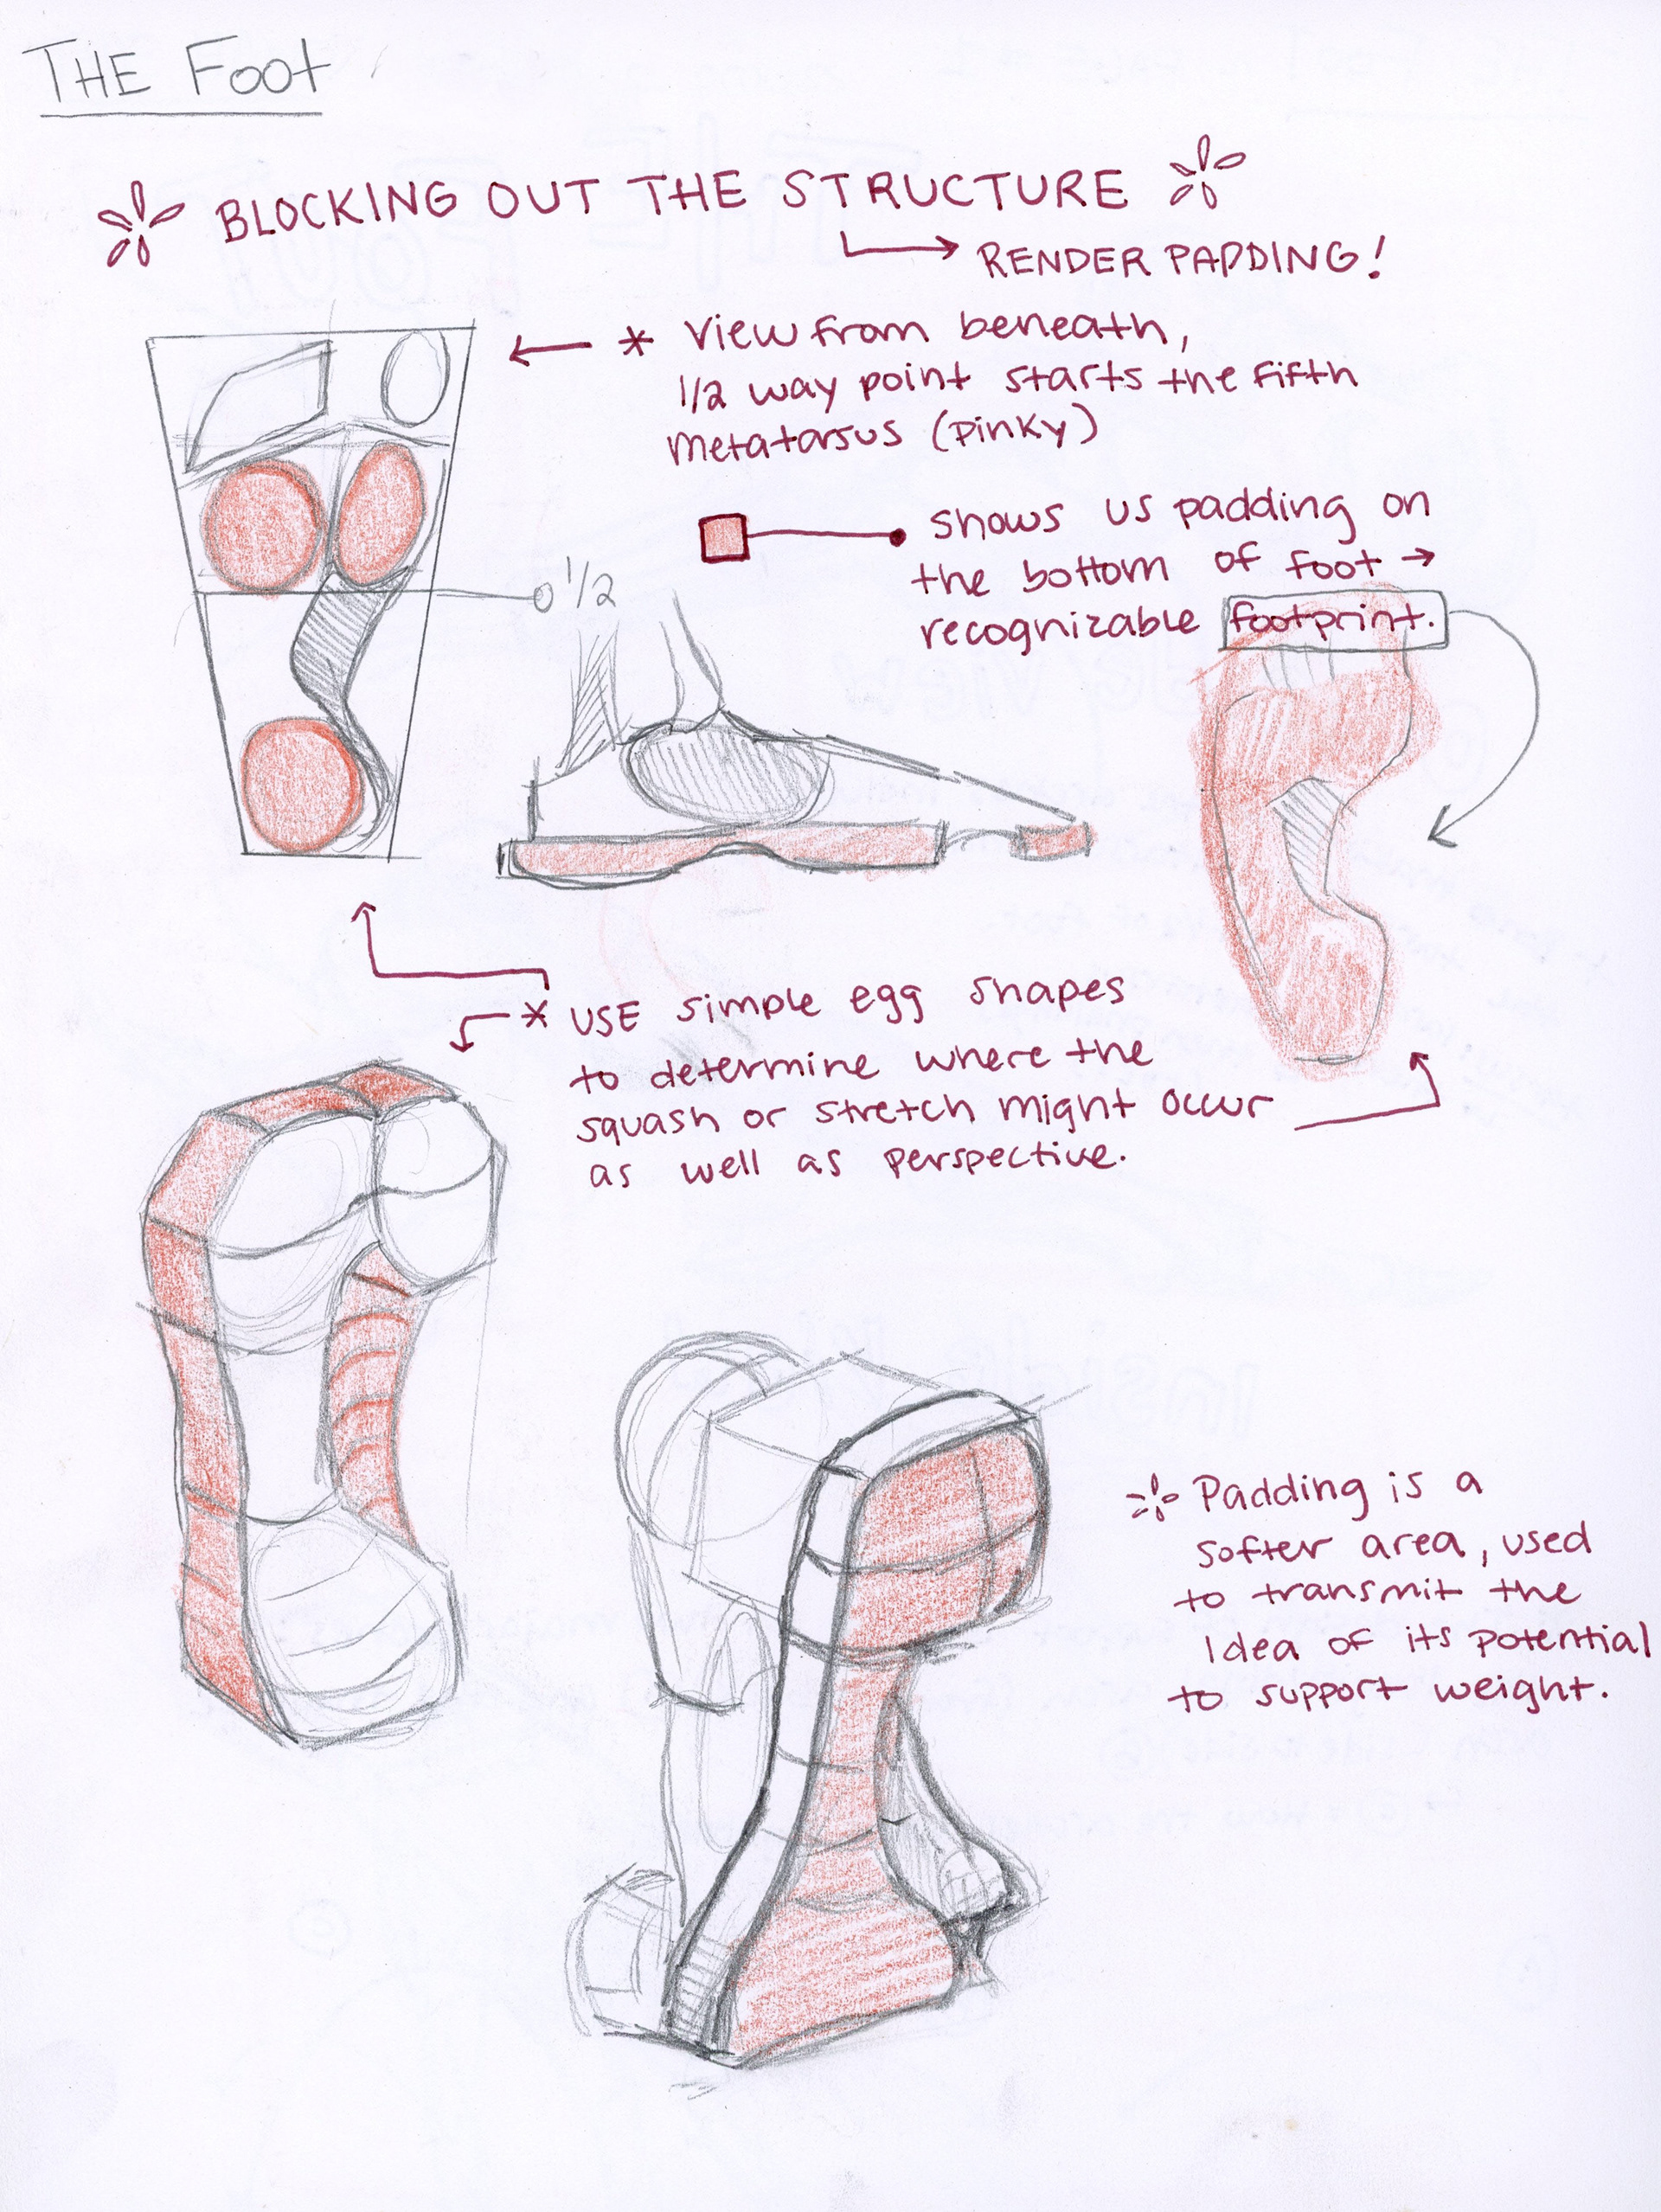 THE FOOT
BLOCKING OUT THE STRUCTURE
RENDER PADDING!
* View from beneath,
1/2 way point starts the fifth
metatarsus (pinky)
shows us padding on
the bottom of foot →
recognizable footprint.
1/2
* USE simple egg shapes
to determine where the
squash or stretch might occur
as well as perspective.
Padding is a
softer area, used
to transmit the
Idea of its potential
to support weight.